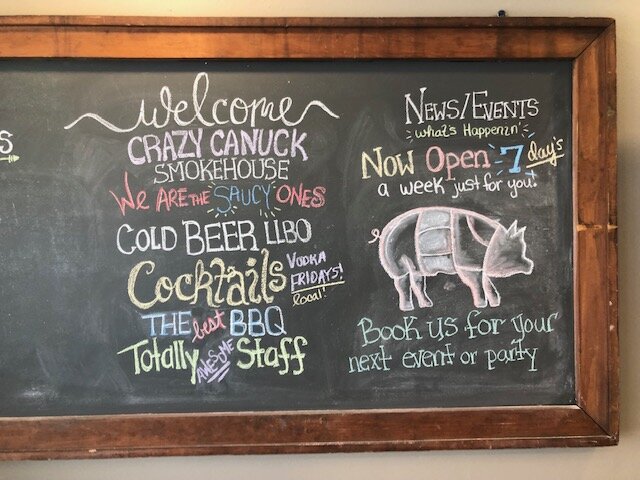 S
welcome
CRAZY CANUCK
SMOKEHOUSE
WE ARE THE SAUCY ONES
COLD BEER LLBO
Cocktails
VODKA
FRIDAYS!
local!
THE best BBQ
Totally AWESOME Staff
NEWS/EVENTS
what's Happenin'
Now Open 7 day's
a week just for you!
Book us for your
next event or party